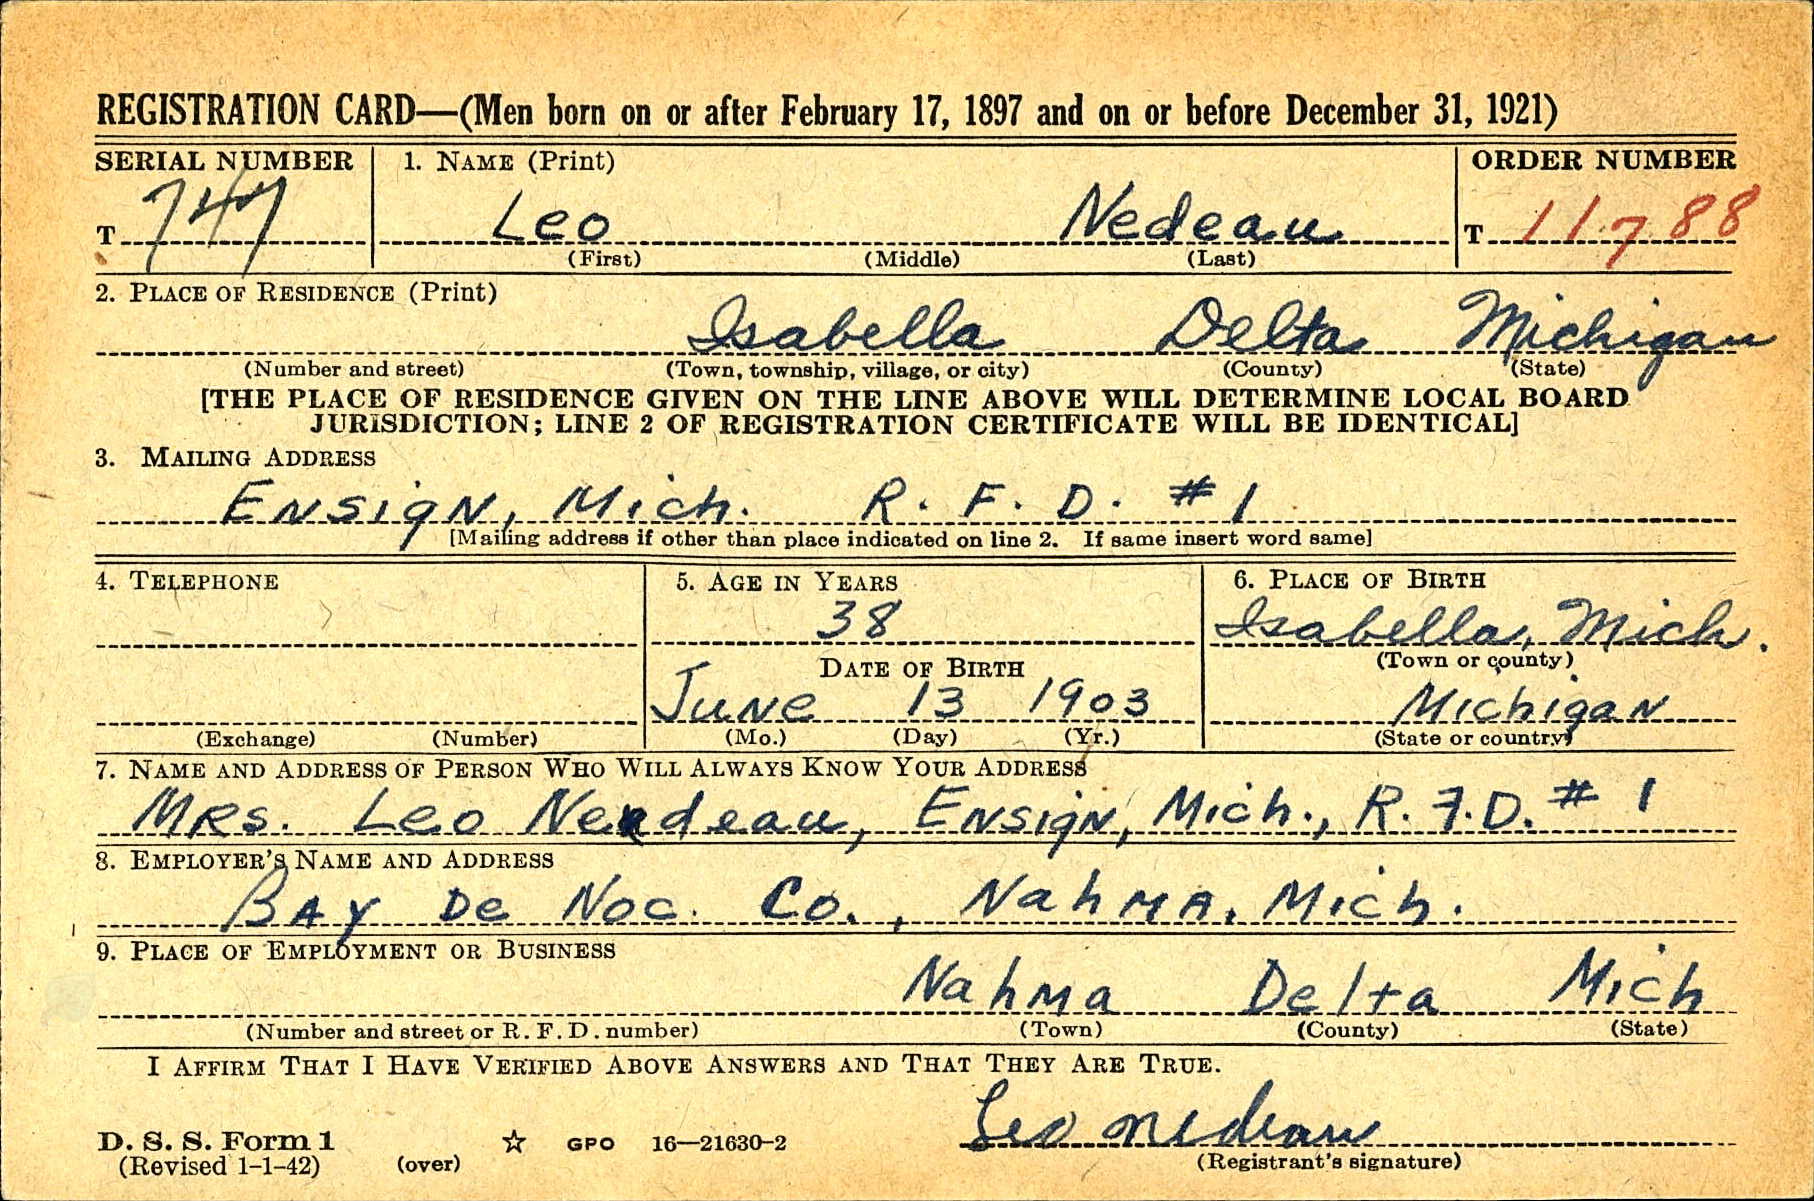 REGISTRATION CARD—(Men born on or after February 17, 1897 and on or before December 31, 1921)
SERIAL NUMBER 1. NAME (Print) ORDER NUMBER
T 747 Leo Nedeau T 11788
(First) (Middle) (Last)
2. PLACE OF RESIDENCE (Print)
Isabella Delta Michigan
(Number and street) (Town, township, village, or city) (County) (State)
[THE PLACE OF RESIDENCE GIVEN ON THE LINE ABOVE WILL DETERMINE LOCAL BOARD
JURISDICTION; LINE 2 OF REGISTRATION CERTIFICATE WILL BE IDENTICAL]
3. MAILING ADDRESS
Ensign, Mich. R. F. D. # 1
[Mailing address if other than place indicated on line 2. If same insert word same]
4. TELEPHONE 5. AGE IN YEARS 6. PLACE OF BIRTH
38 Isabella, Mich.
DATE OF BIRTH (Town or county)
June 13 1903 Michigan
(Exchange) (Number) (Mo.) (Day) (Yr.) (State or country)
7. NAME AND ADDRESS OF PERSON WHO WILL ALWAYS KNOW YOUR ADDRESS
Mrs. Leo Nedeau, Ensign, Mich., R. F. D. # 1
8. EMPLOYER'S NAME AND ADDRESS
Bay De Noc. Co., Nahma, Mich.
9. PLACE OF EMPLOYMENT OR BUSINESS
Nahma Delta Mich
(Number and street or R. F. D. number) (Town) (County) (State)
I AFFIRM THAT I HAVE VERIFIED ABOVE ANSWERS AND THAT THEY ARE TRUE.
Leo Nedeau
D. S. S. Form 1 ☆ GPO 16—21630-2
(Revised 1-1-42) (over) (Registrant's signature)